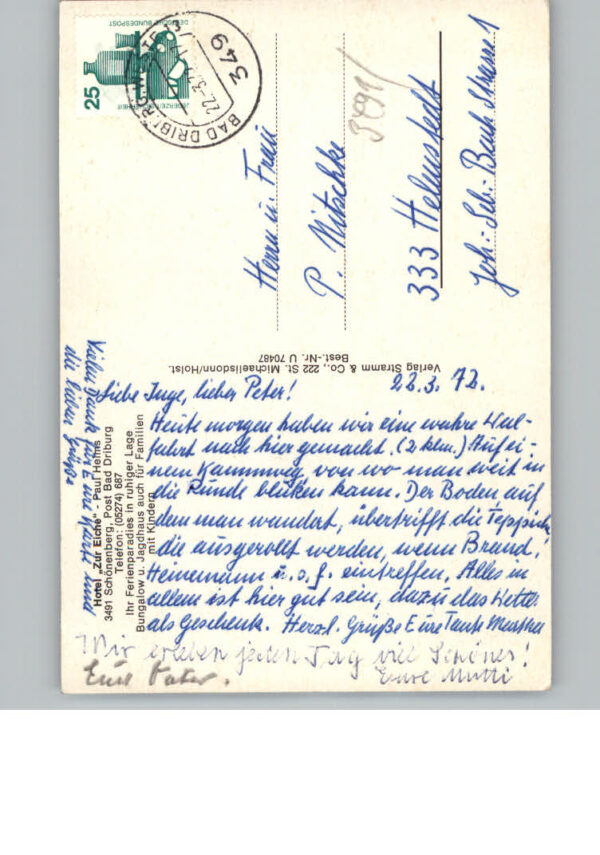 DEUTSCHE BUNDESPOST
25
JEDERZEIT SICHERHEIT
BAD DRIBURG
22.-3.72
349
Herrn u. Frau
P. Nitschke
3491
333 Helmstedt
Joh.-Seb.-Bach Strasse 1
Verlag Stramm & Co., 222 St. Michaelisdonn/Holst.
Best.-Nr. U 70487
Hotel „Zur Eiche“ - Paul Helms
3491 Schönenberg, Post Bad Driburg
Telefon: (05274) 687
Ihr Ferienparadies in ruhiger Lage
Bungalow u. Jagdhaus auch für Familien
mit Kindern
22.3.72.
Liebe Inge, lieber Peter!
Heute morgen haben wir eine wahre Wal-
fahrt nach hier gemacht. (2 klm.) Auf ei-
nem Kammweg von wo man weit in
die Runde blicken kann. Der Boden auf
dem man wandert, übertrifft die Teppiche
die ausgerollt werden, wenn Brand,
Heinemann u.s.f. eintreffen. Alles in
allem ist hier gut sein, dazu das Wetter
als Geschenk. Herzl. Grüße Eure Tante Marthe
Vielen Dank für Eure Karte und
die lieben Grüße
Wir erleben jeden Tag viel Schönes!
Eure Mutti
Euer Vater.